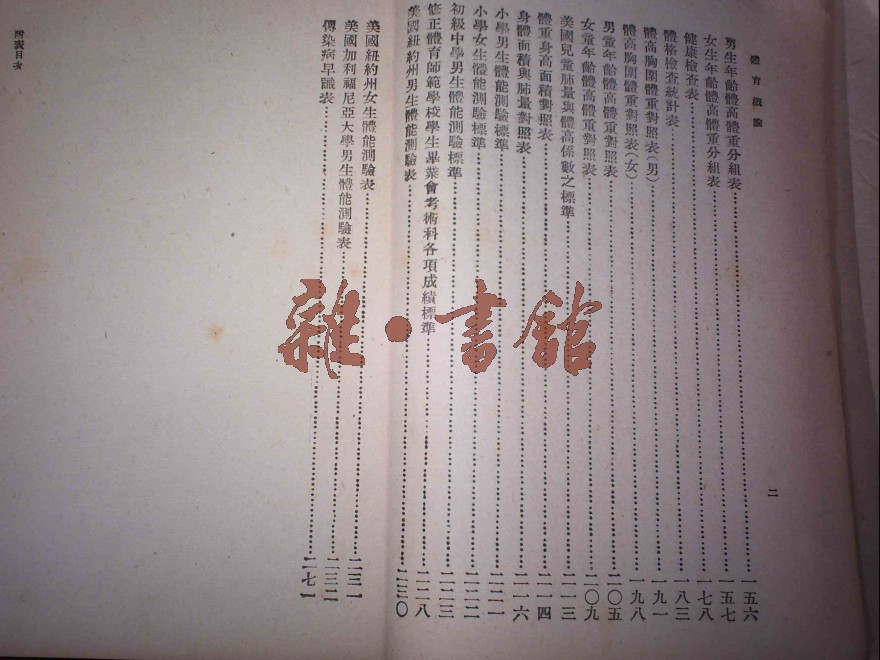 體育概論
二
男生年齡體高體重分組表……一五六
女生年齡體高體重分組表……一五七
健康檢查表……一七八
體格檢查統計表……一八三
體高胸圍體重對照表(男)……一九一
體高胸圍體重對照表(女)……一九八
男童年齡體高體重對照表……二〇五
女童年齡體高體重對照表……二〇九
美國兒童肺量與體高係數之標準……二一三
體重身高面積對照表……二一四
身體面積與肺量對照表……二一六
小學男生體能測驗標準……二二一
小學女生體能測驗標準……二二二
初級中學男生體能測驗標準……二二三
修正體育師範學校學生畢業會考術科各項成績標準……二二八
美國紐約州男生體能測驗表……二三〇
美國紐約州女生體能測驗表……二三一
美國加利福尼亞大學男生體能測驗表……二三二
傳染病早識表……二七一
附表目次
雜·書館